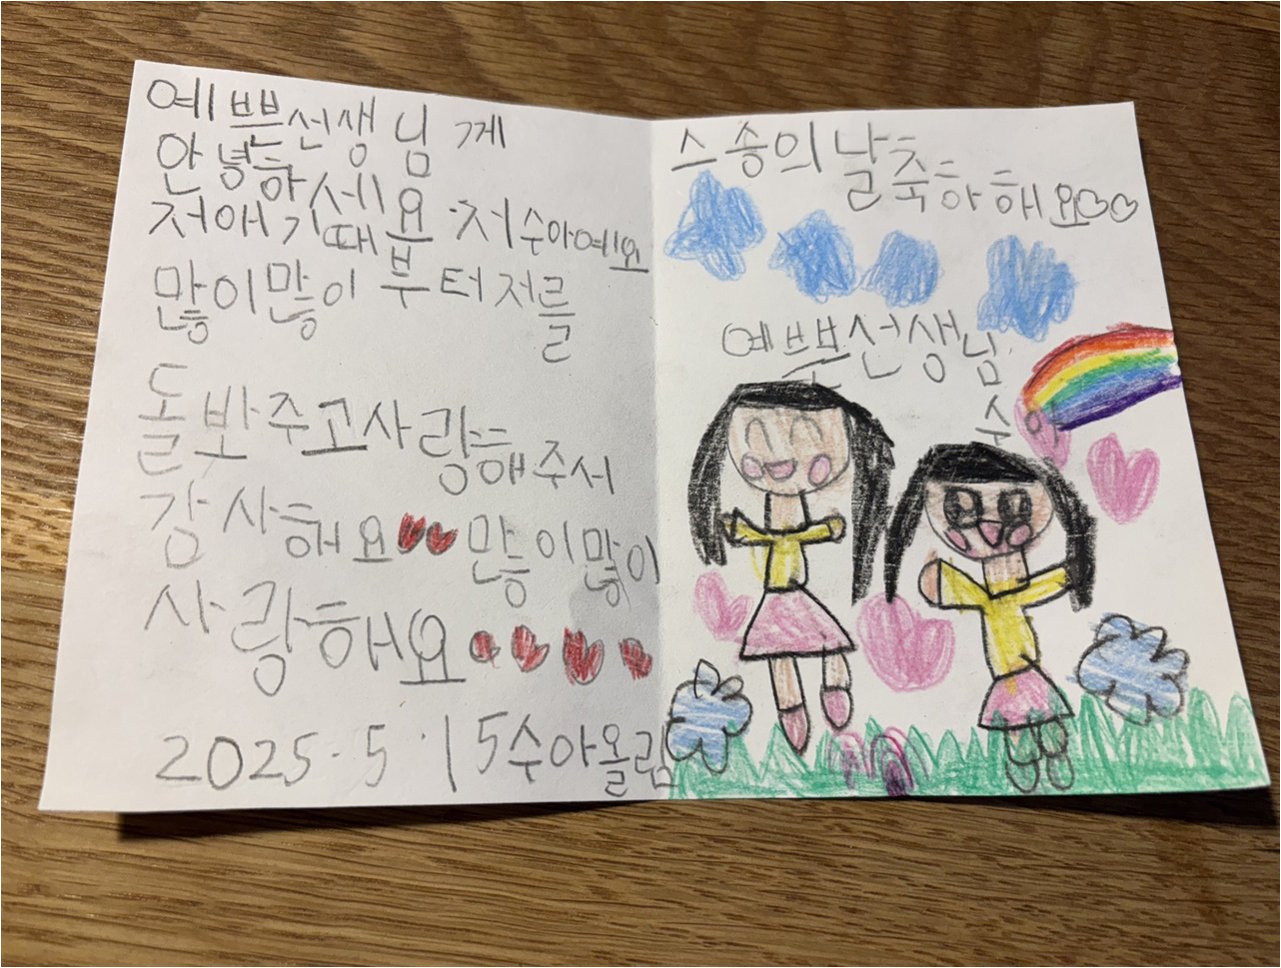 예쁜선생님께
안녕하세요 저 수아예요
저 애기때부터 저를
많이많이
돌봐주고사랑해주서
감사해요♥♥ 많이많이
사랑해요♥♥♥♥
2025.5.15수아올림
스송의날축하해요♡♡
예쁜선생님
수아